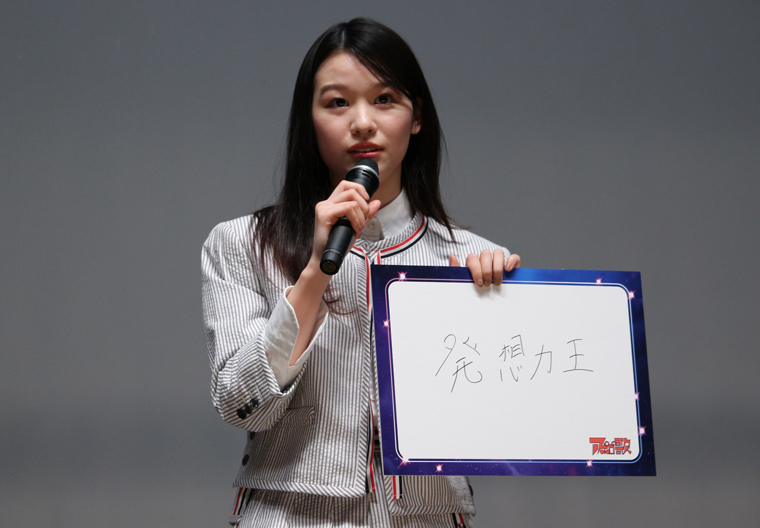 発想力王